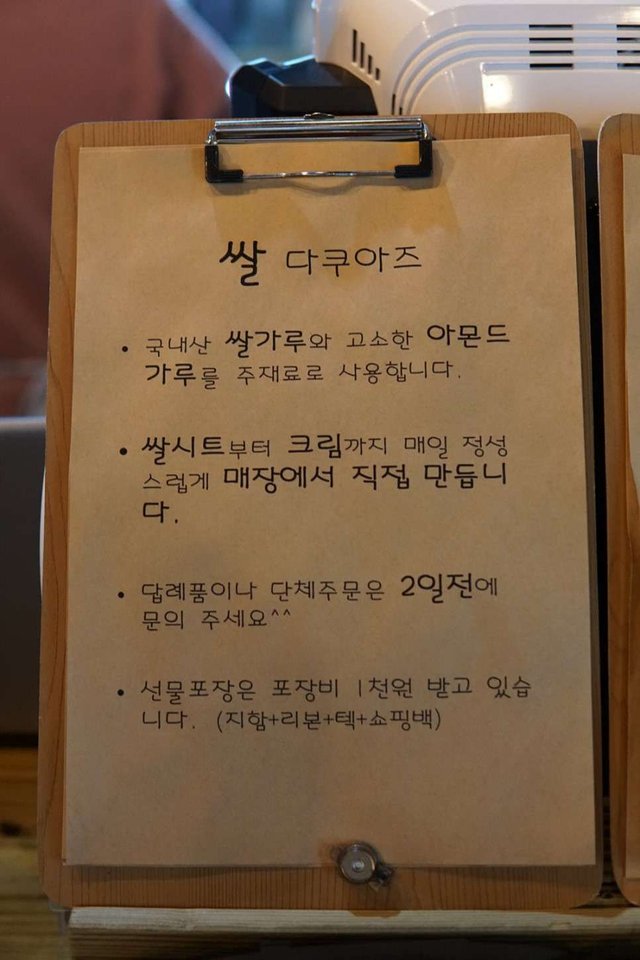 쌀 다쿠아즈
• 국내산 쌀가루와 고소한 아몬드
가루를 주재료로 사용합니다.
• 쌀시트부터 크림까지 매일 정성
스럽게 매장에서 직접 만듭니
다.
• 답례품이나 단체주문은 2일전에
문의 주세요^^
• 선물포장은 포장비 1천원 받고 있습
니다. (지함+리본+텍+쇼핑백)